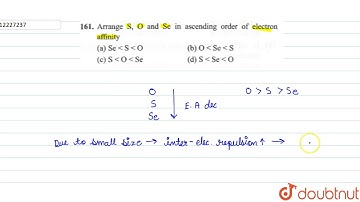 12227237
161. Arrange S, O and Se in ascending order of electron
affinity
(a) Se < S < O (b) O < Se < S
(c) S < O < Se (d) S < Se < O
O O > S > Se
S E.A dec
Se
Due to small size → inter-elec. repulsion ↑ →
doubtnut